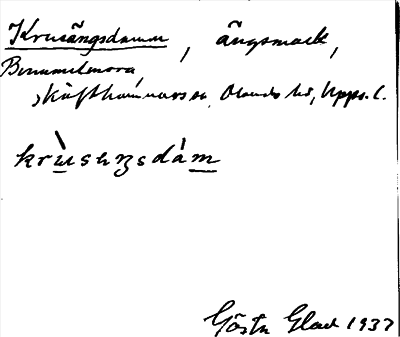 Krusängsdammen, ängsmark,
Bummelmora,
Käfthammarsån, Olands hd, Upps. l.
krùsengsdám
Gösta Glad 1937